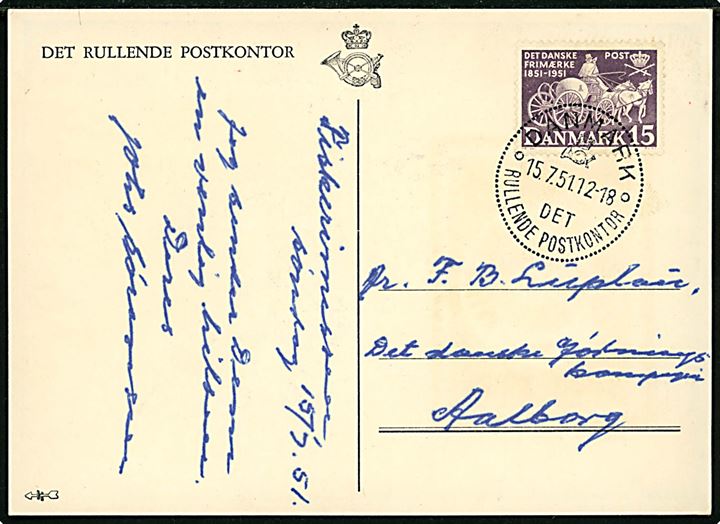 DET RULLENDE POSTKONTOR
DET DANSKE
FRIMÆRKE
1851-1951
POST
DANMARK 15
DANMARK
15.7.51.12-18
DET
RULLENDE POSTKONTOR
søndag 15/7.51.
Jeg sender Dem
en venlig hilsen.
Deres
Johs. Sørensen
Hr. F. B. Luplau,
Det danske Gødnings
kompagni
Aalborg